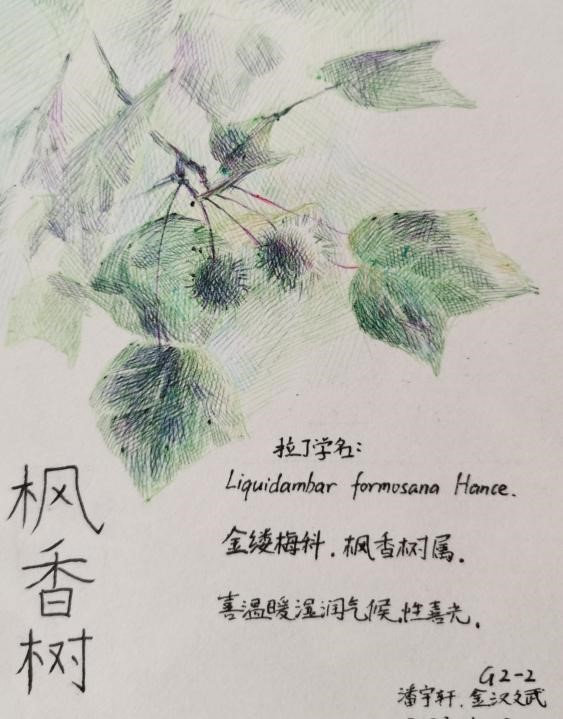 枫香树
拉丁学名:
Liquidambar formosana Hance.
金缕梅科.枫香树属.
喜温暖湿润气候,性喜光.
G2-2
潘宇轩.金汉文武